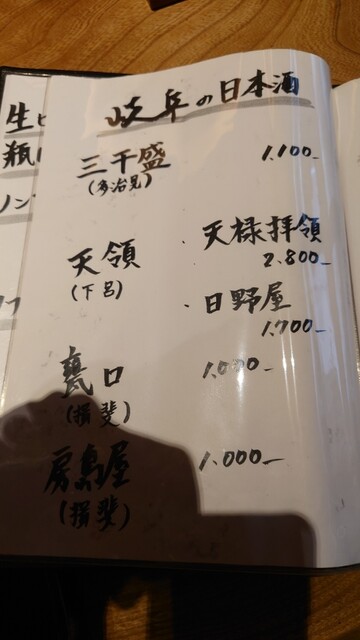 岐阜の日本酒
三千盛 1.100-
(多治見)
天領 ・天禄拝領
(下呂) 2.800-
・日野屋
1.700-
甕口 1.000-
(揖斐)
房島屋 1.000-
(揖斐)
生ビ
瓶
ノン